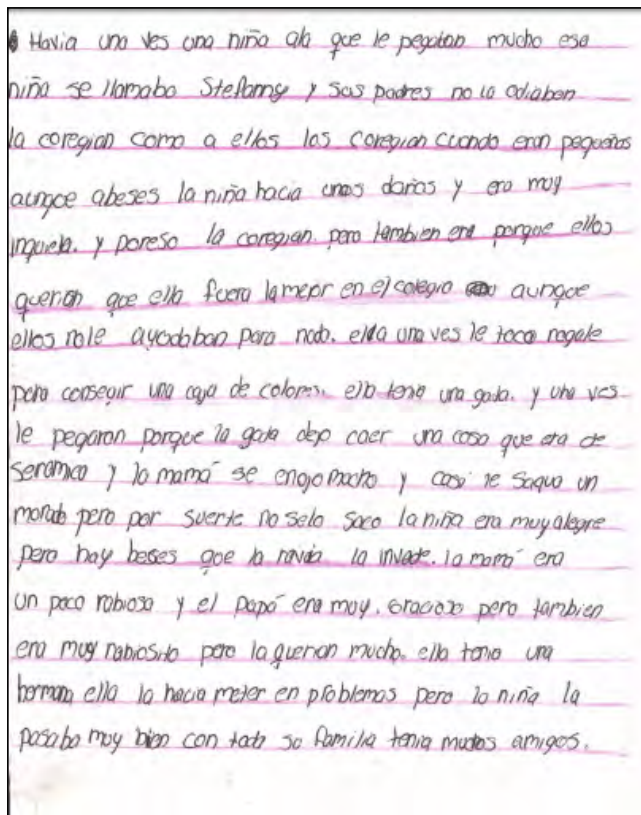 Havia una ves una niña ala que le pegaban mucho esa
niña se llamaba Stefanny y sus padres no la odiaban
la coregian como a ellos los coregian cuando eran pequeños
aunqce abeses la niña hacia unos daños y era muy
inquieta. y poreso la coregian. pero tambien era porque ellos
querian que ella fuera la mejor en el colegio aunque
ellos nole ayudaban para nada. ella una ves le toco rogale
para conseguir una caja de colores. ella tenia una gata. y una ves
le pegaron porque la gata dejo caer una cosa que era de
seramica y la mamá se enojo mucho y casi le saqua un
morado pero por suerte no selo saco la niña era muy alegre
pero hay beses que la ravia la invade. la mamá era
un poco rabiosa y el papá era muy. gracioso pero tambien
era muy rabiosito pero la querian mucho. ella tenia una
hermana ella la hacia meter en problemas pero la niña la
pasaba muy bien con toda su familia tenia muchos amigos.